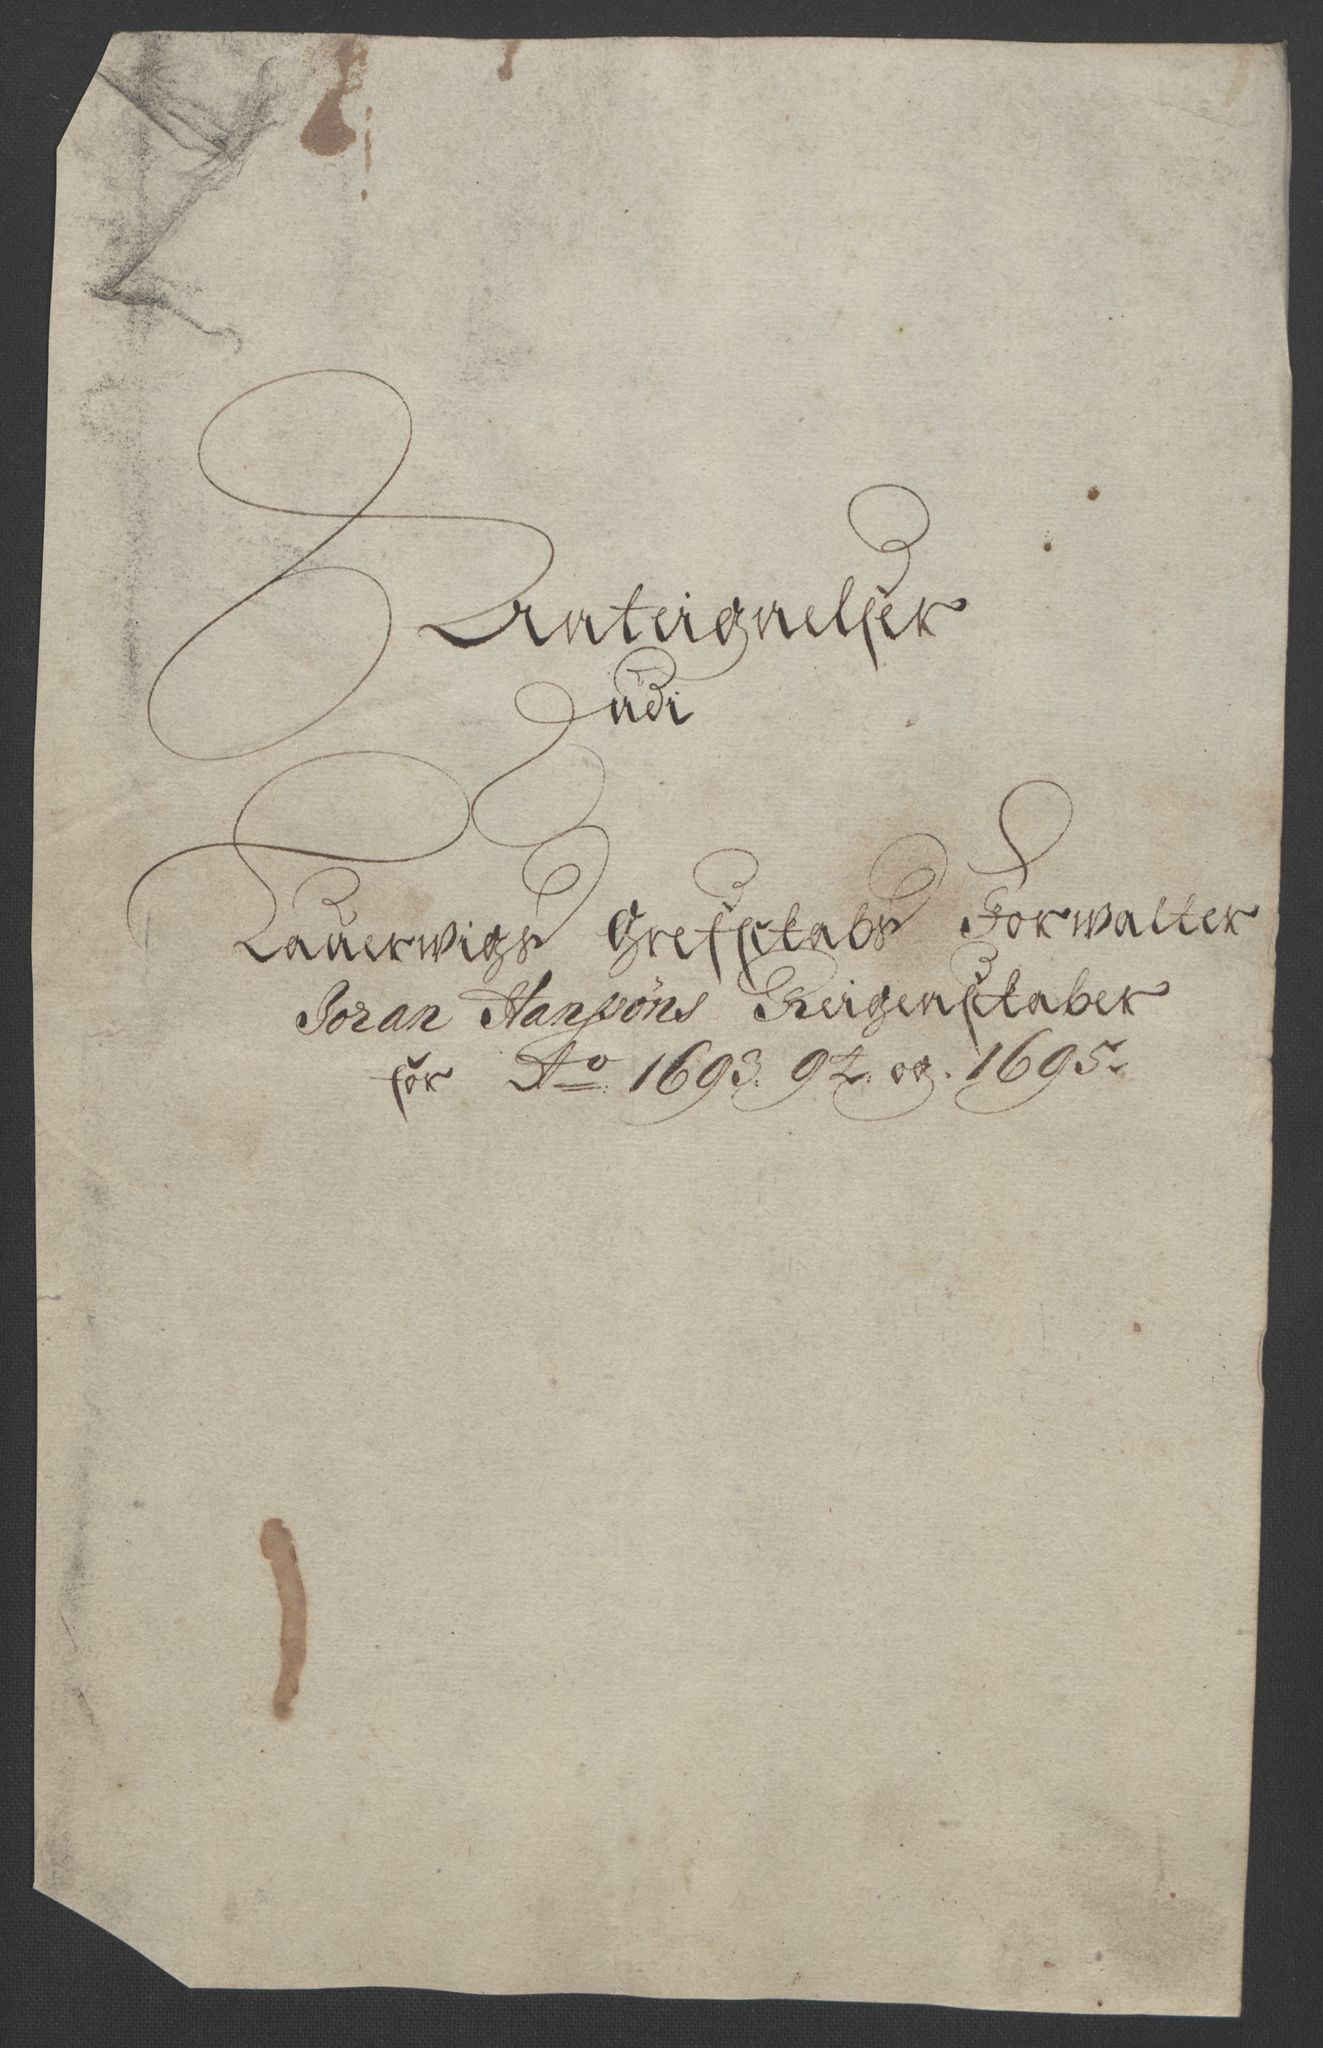 Anteignelser
udi
Lauerwigs Grefschabs Forwalter
Joran Hanssöns Reigenschaber
for Ao 1693. 94. og. 1695.